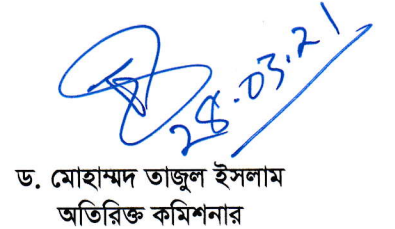 28.03.21
ড. মোহাম্মদ তাজুল ইসলাম
অতিরিক্ত কমিশনার